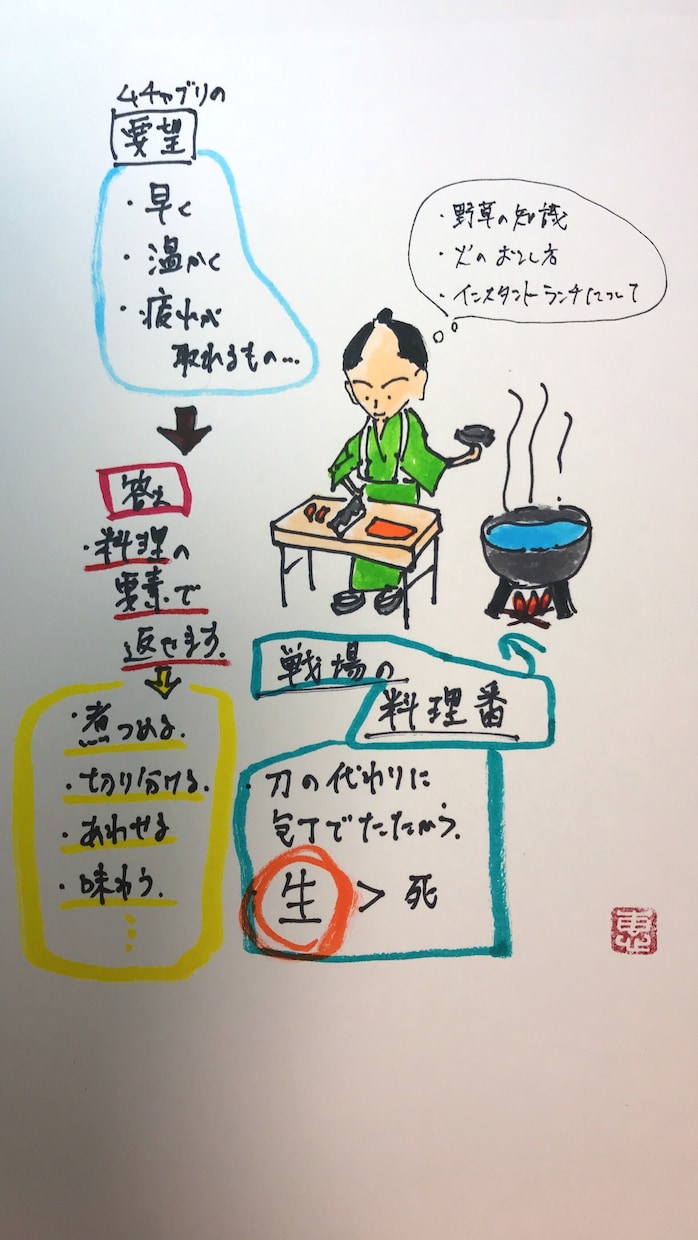 ムチャブリの
要望
・早く
・温かく
・疲れが
取れるもの…
答え
・料理の
要素で
返せます。
・煮つめる。
・切り分ける。
・あわせる
・味わう。
・野草の知識
・火のおこし方
・インスタントランチについて
戦場の
料理番
・刀の代わりに
包丁でたたかう。
・生 > 死